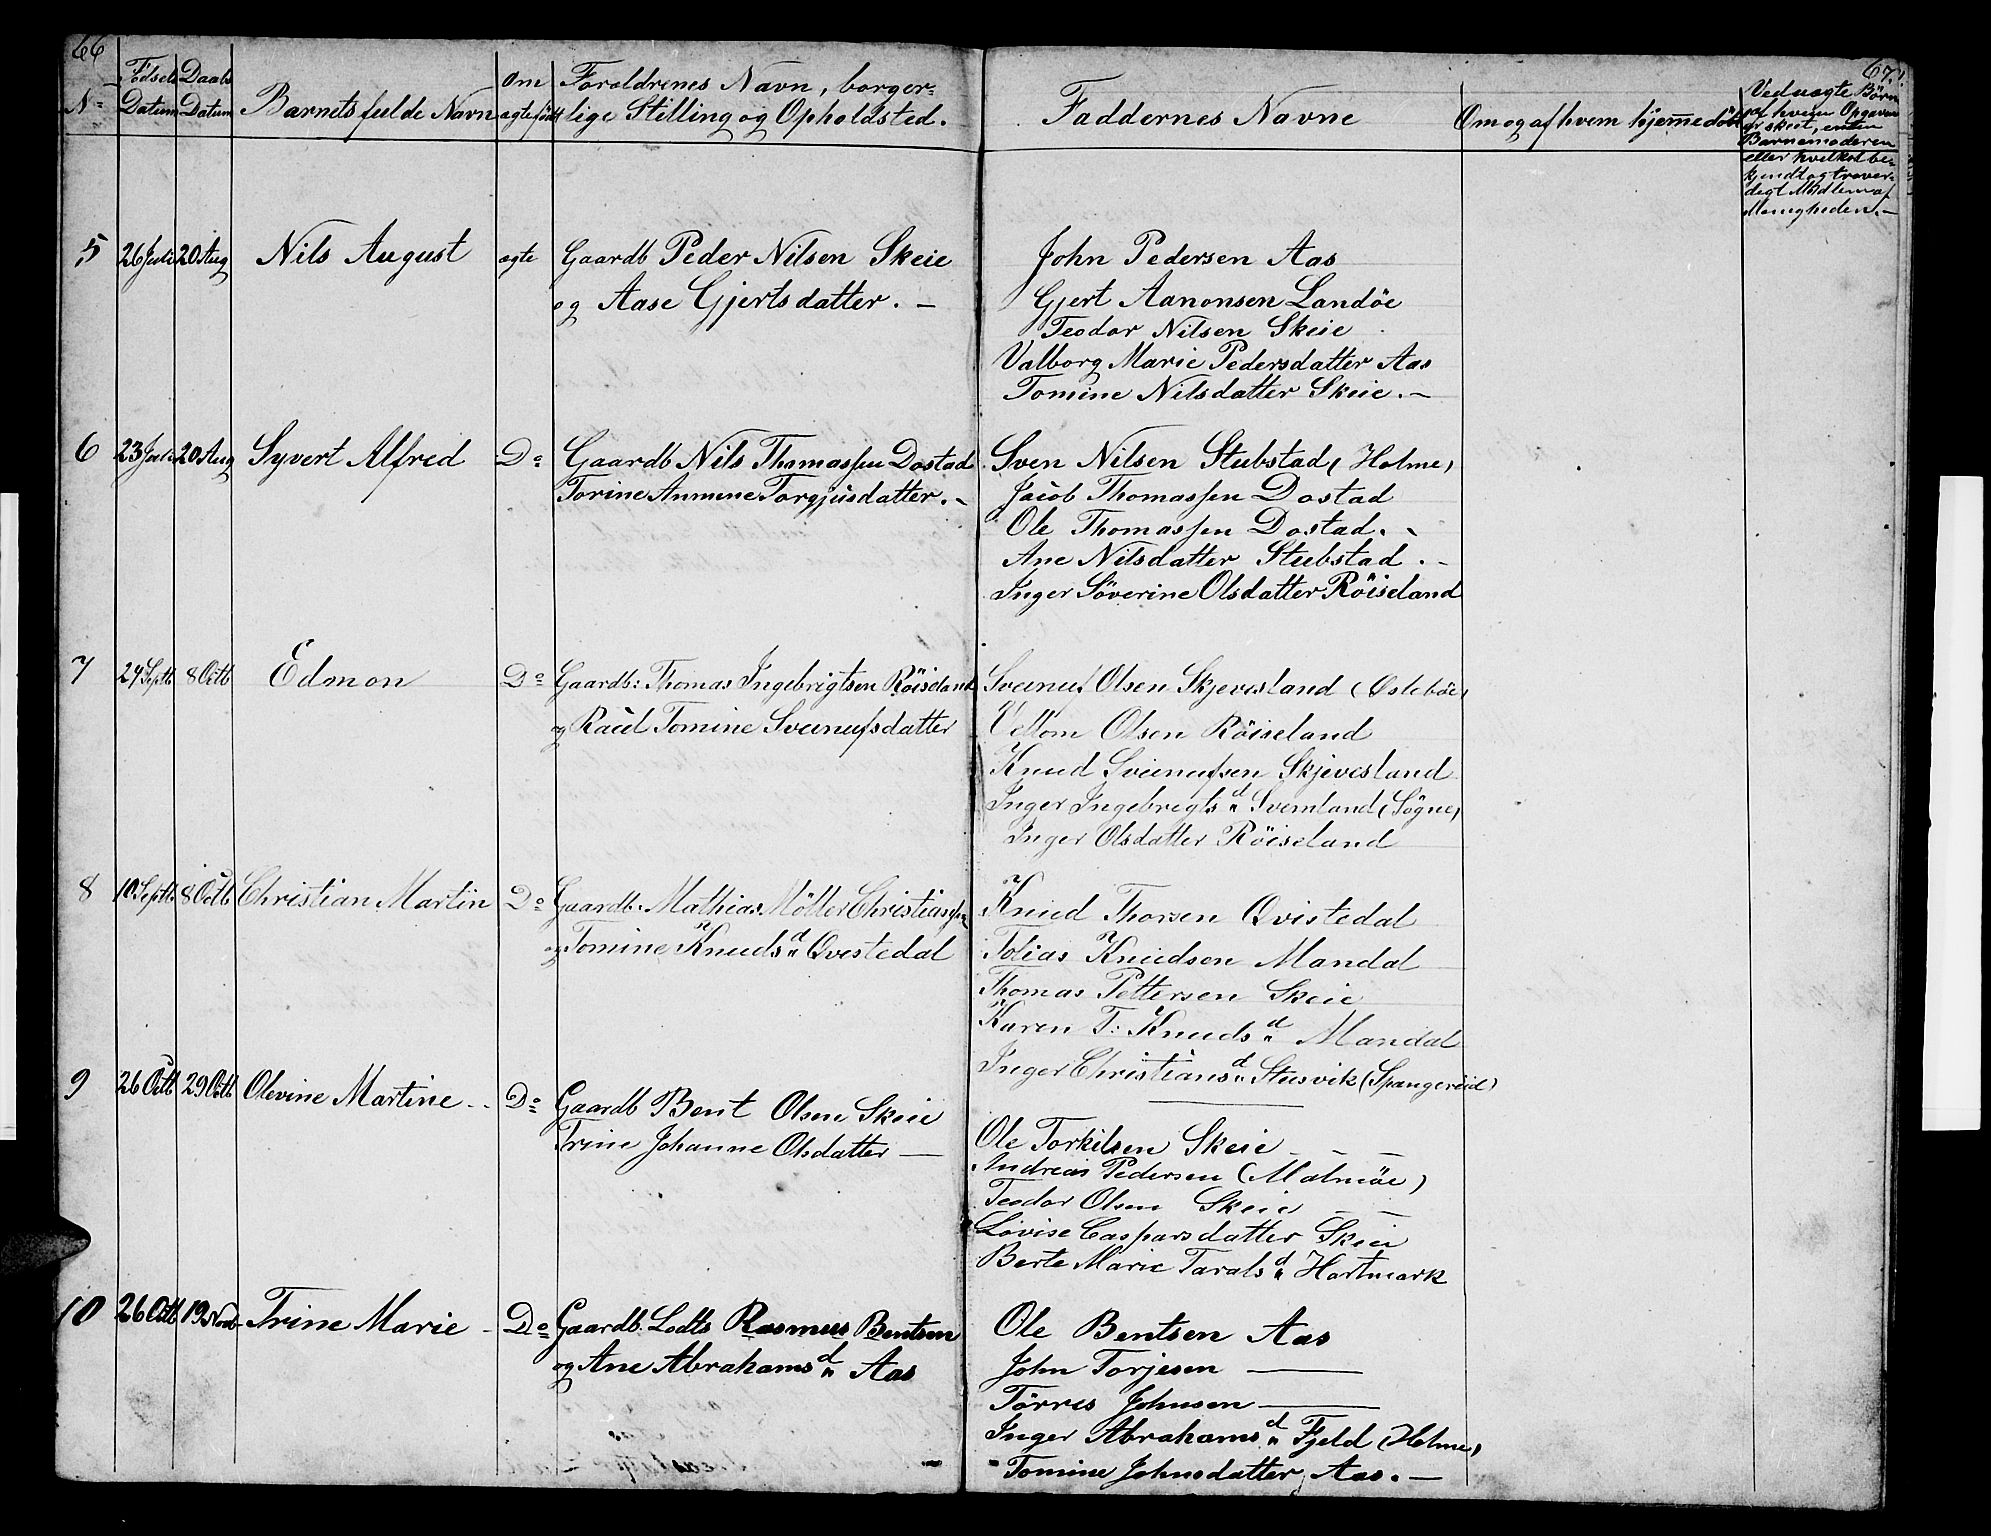 66
67.
No
Fødsels Datum
Daabs Datum
Barnets fulde Navn
Om ægte født
Forældrenes Navn, borger-
lige Stilling og Opholdsted.
Faddernes Navne
Om og af hvem hjemmedöbt
Ved uægte Börn
af hvem Opgaven
er skeet, enten
Barnemoderen
eller hvilket be-
kjendt og trover-
digt Medlem af
Menigheden.-
5 26 Juli 20 Aug Nils August ægte Gaardb Peder Nilsen Skeie
og Aase Gjertsdatter. -
John Pedersen Aas
Gjert Aanonsen Landöe
Teodor Nilsen Skeie
Valborg Marie Pedersdatter Aas
Tomine Nilsdatter Skeie. -
6 23 Juli 20 Aug Syvert Alfred Do Gaardb Nils Thomassen Dostad
Torine Anmine Torgjusdatter. -
Sven Nilsen Stubstad (Holme)
Jacob Thomassen Dostad
Ole Thomassen Dostad. -
Ane Nilsdatter Stubstad. -
Inger Söverine Olsdatter Röiseland
7 24 Septb 8 Octb Edmon Do Gaardb: Thomas Ingebrigtsen Röiseland
og Racel Tomine Sveinufsdatter
Sveinuf Olsen Skjevesland (Osleböe)
Vellom Olsen Röiseland
Knud Sveinufsen Skjevesland
Inger Ingebrigts d. Svemland (Sögne)
Inger Olsdatter Röiseland
8 10 Septb. 8 Octb Christian Martin Do Gaardb. Mathias Möller Christiansen
og Tomine Knuds d. Qvistedal
Knud Thorsen Qvistedal
Tobias Knudsen Mandal
Thomas Pettersen Skeie
Karen T: Knuds d. Mandal
Inger Christians d. Stusvik (Spangereid)
9 26 Octb 29 Octb Olevine Martine - Do Gaardb Bent Olsen Skeie
Trine Johanne Olsdatter -
Ole Torkilsen Skeie - - -
Andreas Pedersen (Malmöe)
Teodor Olsen Skeie - -
Lovise Caspars datter Skeie
Berte Marie Tarals d. Hartmark
10 26 Octb 19 Novb Trine Marie - Do Gaardb. Lodts Rasmus Bentsen
og Ane Abrahams d. Aas
Ole Bentsen Aas
John Torjesen -
Törres Johnsen -
Inger Abrahams d. Fjeld (Holme)
Tomine Johnsdatter Aas. -